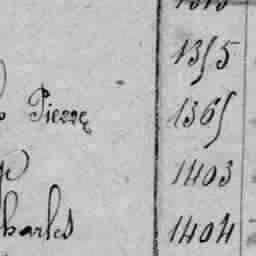 1355
Pierre 1365
1403
Charles 1404